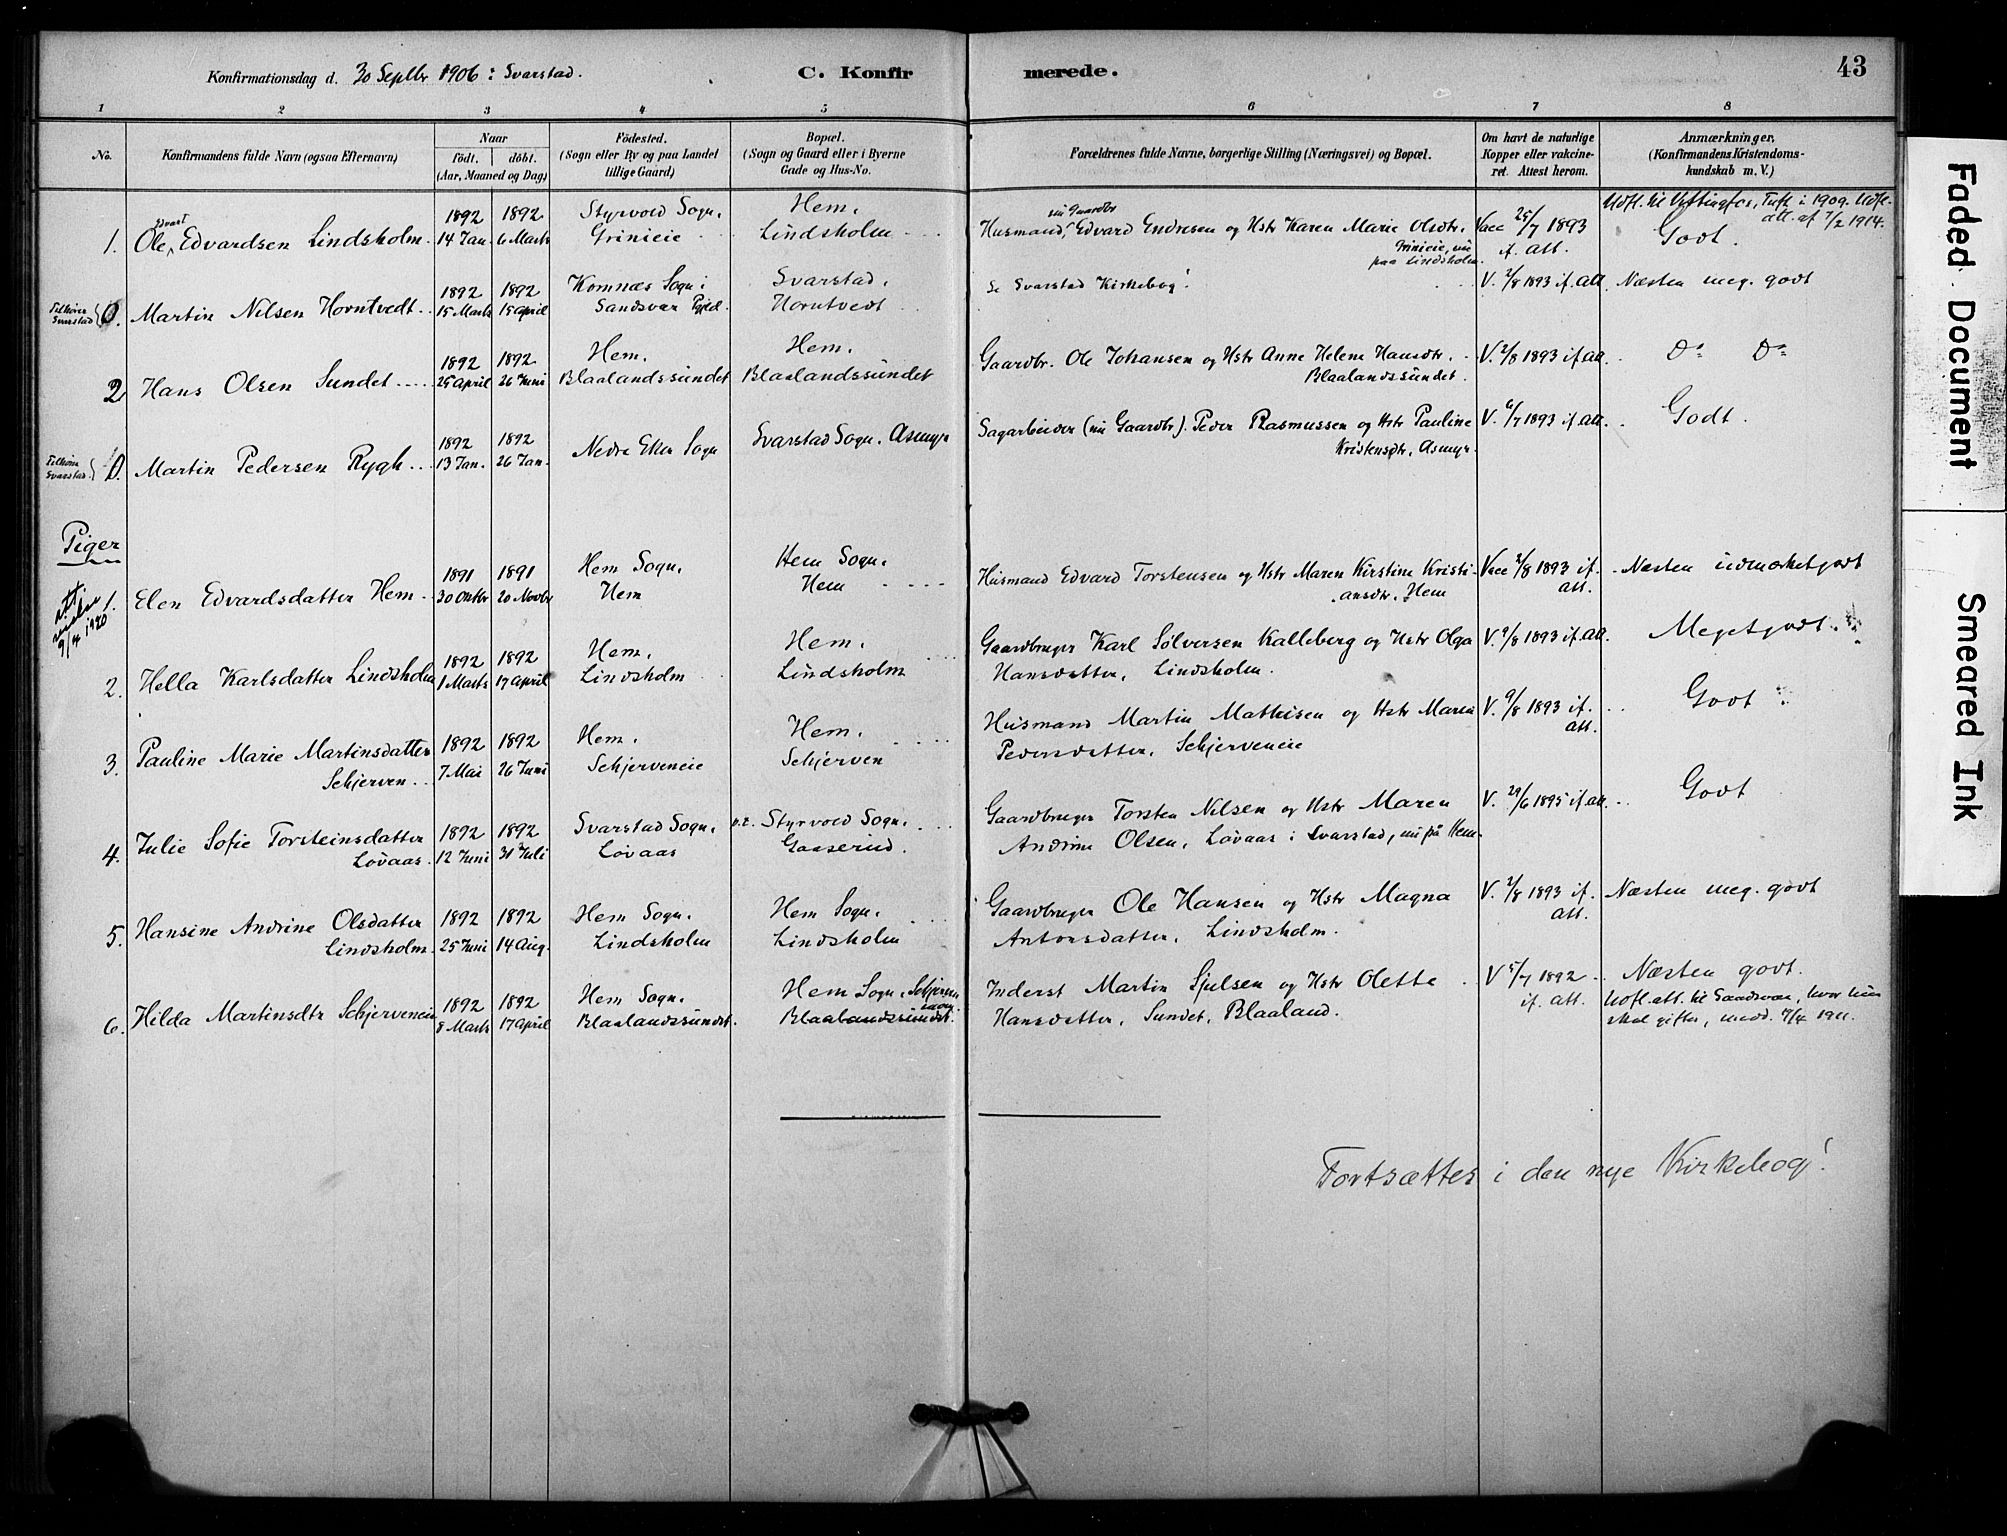 Konfirmationsdag d. 30 Septbr 1906: Svarstad.
C. Konfirmerede.
43
1 2 3 4 5 6 7 8
No.
Konfirmandens fulde Navn (ogsaa Efternavn)
Naar
födt. döbt.
(Aar, Maaned og Dag)
Födested.
(Sogn eller By og paa Landet
tillige Gaard)
Bopæl.
(Sogn og Gaard eller i Byerne
Gade og Hus-No.
Forældrenes fulde Navne, borgerlige Stilling (Næringsvei) og Bopæl.
Om havt de naturlige
Kopper eller vakcine-
ret. Attest herom.
Anmærkninger,
(Konfirmandens Kristendoms-
kundskab m. V.)
1. Ole Edvart Edvardsen Lindsholm.
1892 14 Jan.
1892 6 Marts
Styrvold Sogn.
Grinieie
Hem.
Lindsholm
Husmand, nu Gaardbr Edvard Endresen og Hstr Karen Marie Olsdtr.
Grinieie, nu
paa Lindsholm.
Vacc 25/7 1893
if. att.
Udfl. til Vittingfos, Tuft i 1909. Udfl.
att. af 7/2 1914.
Godt.
Tilhører
Svarstad
0. Martin Nilsen Horntvedt
1892 15 Marts
1892 15 April
Komnæs Sogn i
Sandsvær Pgjeld.
Svarstad.
Horntvedt
Se Svarstad Kirkebog!
V. 2/8 1893 if. att.
Næsten meg. godt
2 Hans Olsen Sundet
1892 25 April
1892 26 Juni
Hem.
Blaalandssundet
Hem.
Blaalandssundet
Gaardbr. Ole Johansen og Hstr Anne Helene Hansdtr.
Blaalandssundet.
V. 2/8 1893 if att.
Do Do
Tilhører
Svarstad
0. Martin Pedersen Rygh
1892 13 Jan.
1892 26 Jan.
Nedre Eker Sogn
Svarstad Sogn. Asmyr
Sagarbeider (nu Gaardbr). Peder Rasmussen og Hstr Pauline
Kristensdtr. Asmyr.
V. 6/7 1893 if. att.
Godt.
Piger
att.
9/4 1920
1. Elen Edvardsdatter Hem
1891 30 Oktbr
1891 20 Novbr
Hem Sogn.
Hem
Hem Sogn.
Hem
Husmand Edvard Torstensen og Hstr Maren Kirstine Kristi-
ansdtr. Hem
Vacc 2/8 1893 if.
att.
Næsten udmærketgodt
2. Hella Karlsdatter Lindsholm
1892 1 Marts
1892 17 April
Hem.
Lindsholm
Hem.
Lindsholm
Gaardbruger Karl Sølversen Kalleberg og Hstr Olga
Hansdatter, Lindsholm.
V. 9/8 1893 if. att.
Megetgodt.
3. Pauline Marie Martinsdatter
Schjerven
1892 7 Mai
1892 26 Juni
Hem.
Schjerveneie
Hem.
Schjerven
Husmand Martin Mathisen og Hstr Maren
Pedersdatter, Schjerveneie
V. 9/8 1893 if.
att.
Godt
4. Julie Sofie Torsteinsdatter
Løvaas
1892 12 Juni
1892 31 Juli
Svarstad Sogn.
Løvaas
Styrvold Sogn.
Gaaserud.
Gaardbruger Torsten Nilsen og Hstr Maren
Andrine Olsen, Løvaas i Svarstad, nu på Hem.
V. 29/6 1895 if. att.
Godt
5. Hansine Andrine Olsdatter
Lindsholm
1892 25 Juni
1892 14 Aug.
Hem Sogn.
Lindsholm
Hem Sogn.
Lindsholm
Gaardbruger Ole Hansen og Hstr Magna
Antonsdatter, Lindsholm.
V. 2/8 1893 if.
att.
Næsten meg. godt
6. Hilda Martinsdtr Schjerveneie
1892 8 Marts
1892 17 April
Hem Sogn.
Blaalandssundet.
Hem Sogn. Schjerven
Blaalandssundet.
Inderst Martin Sjulsen og Hstr Olette
Hansdatter, Sundet, Blaaland.
V 5/7 1892
if. att.
Næsten godt.
Udfl. att. til Sandsvær, hvor hun
skal giftes, medd. 7/4 1911.
Fortsættes i den nye Kirkebog!
Faded Document
Smeared Ink